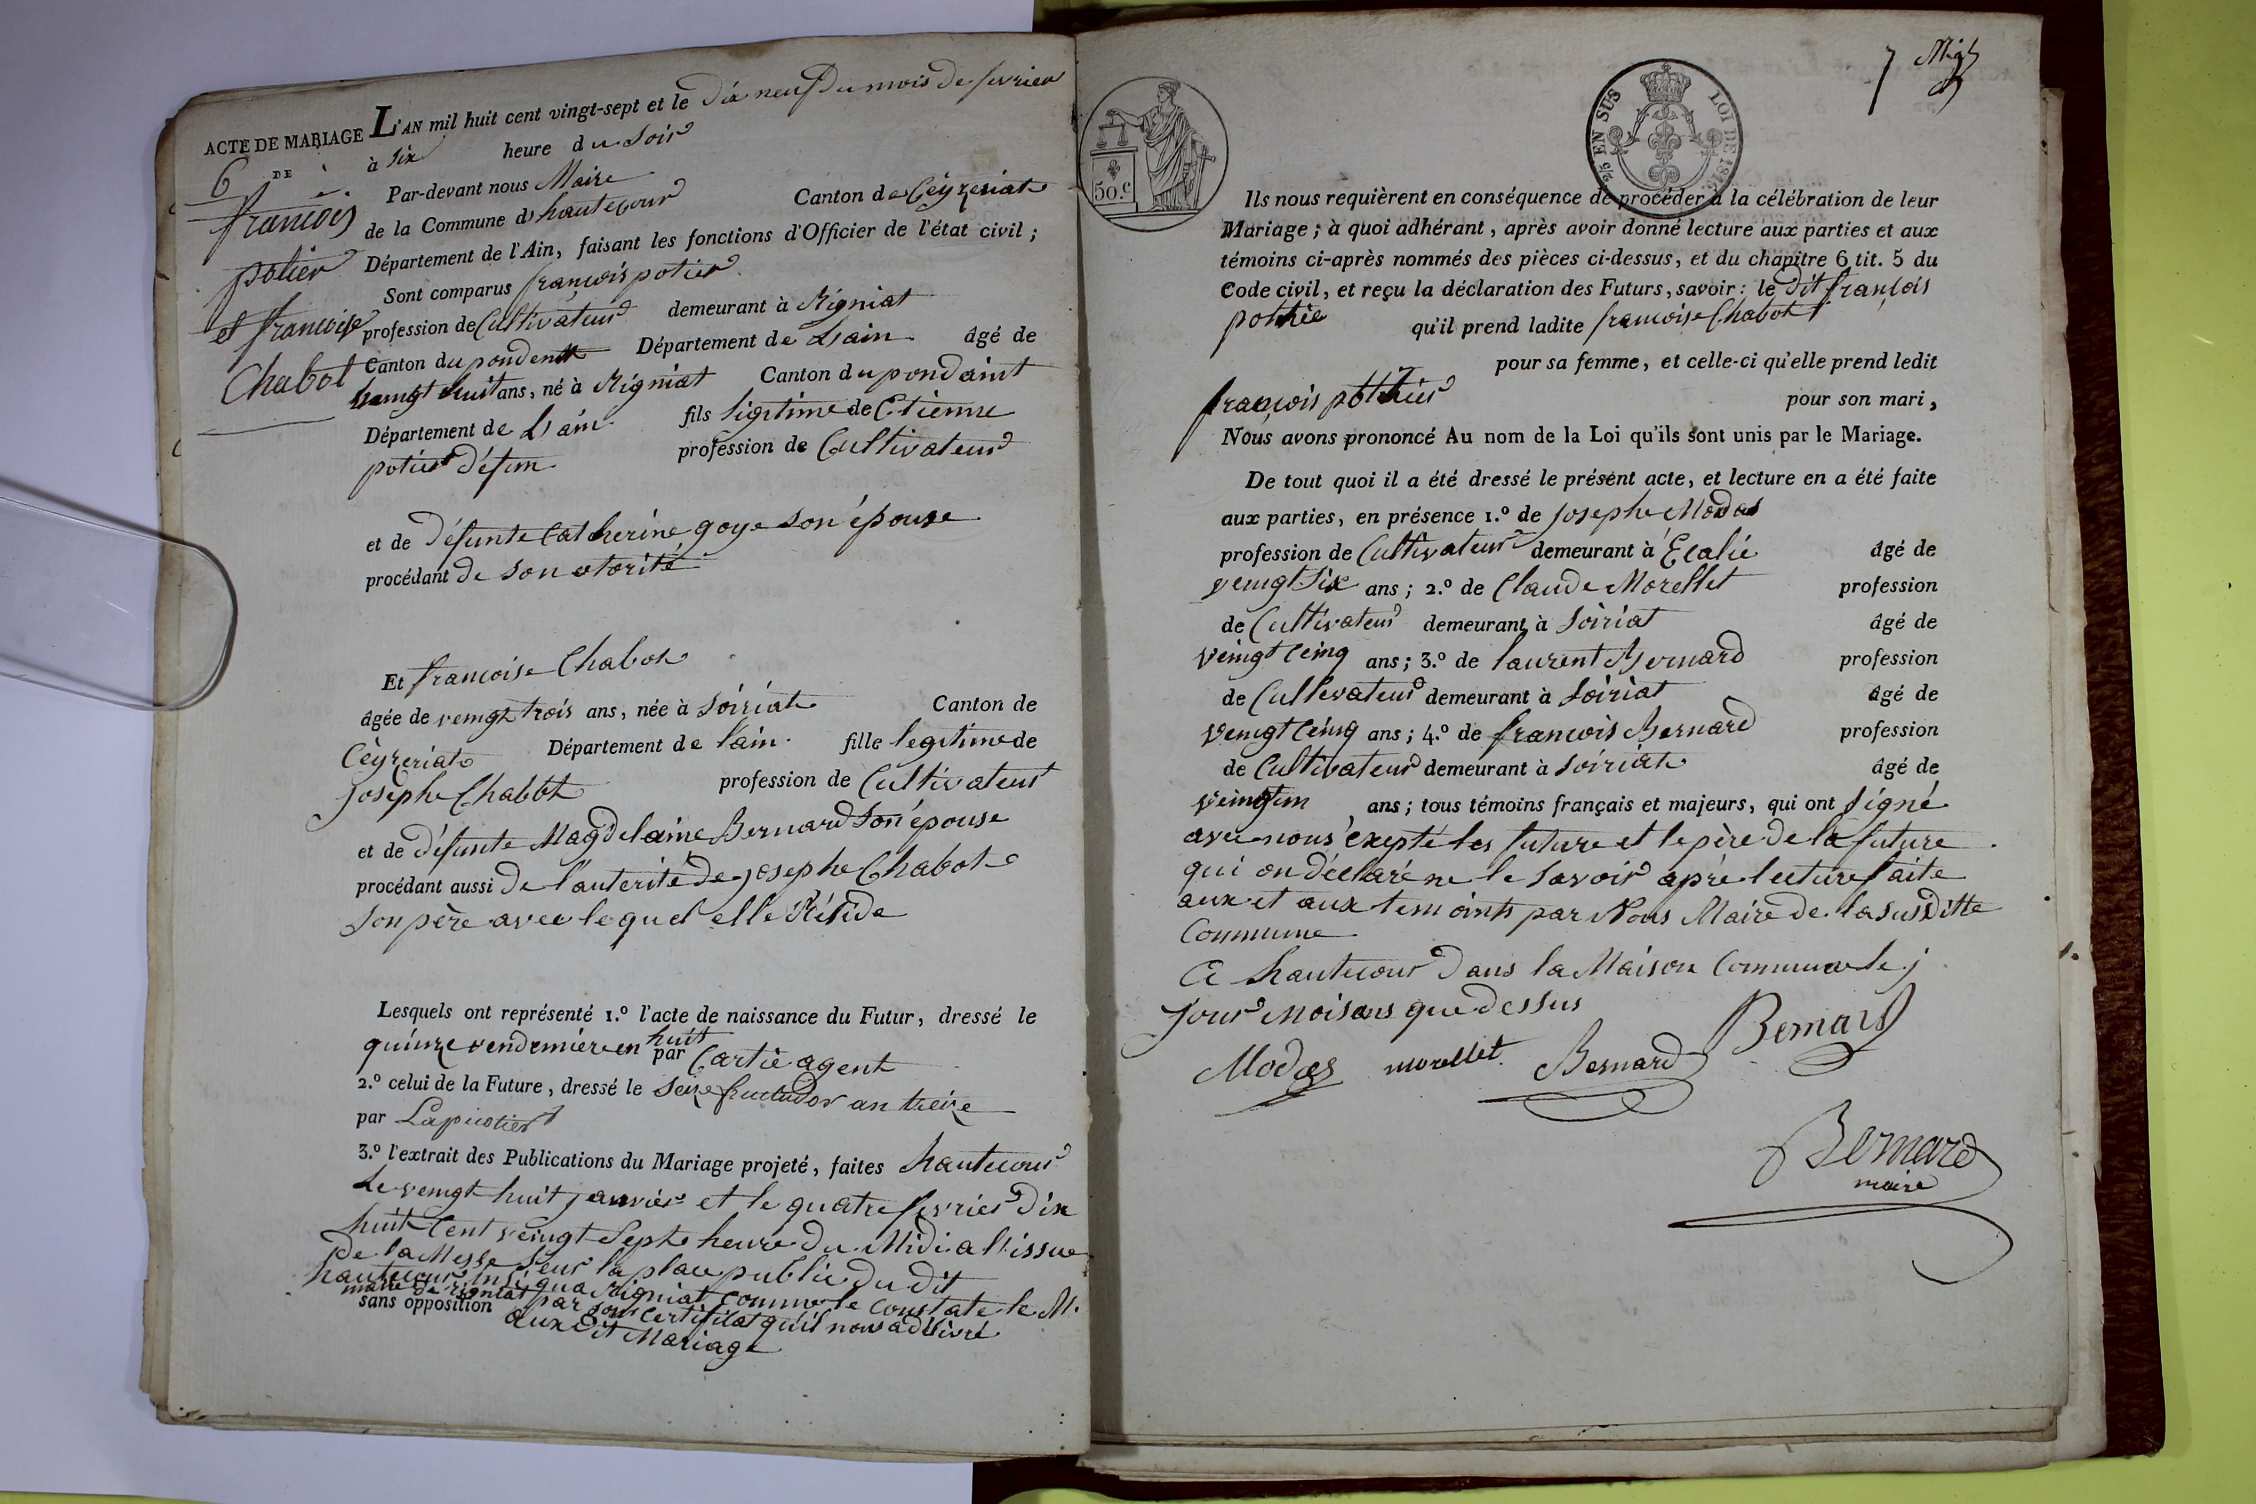 ACTE DE MARIAGE
6 DE
francois
potier
et francoise
Chabot
L'AN mil huit cent vingt-sept et le dix neuf du mois de fevrier
à six heure du soir
Par-devant nous Maire
de la Commune d hautecour Canton de Ceÿzeriat
Département de l'Ain, faisant les fonctions d'Officier de l'état civil ;
Sont comparus françois potier
profession de Cultivateur demeurant à Rigniat
Canton du Département de Lain âgé de
veingt huit ans, né à Rigniat Canton du pondaint
Département de Lain fils ligitime de Etienne
potier défun profession de Cultivateur
et de défunte Catherine goye son épouse
procédant de son otorité
Et francoise Chabot
âgée de veingt trois ans, née à Soiriat Canton de
Ceÿzeriat Département de lain fille legitime de
Joseph Chabot profession de Cultivateur
et de défunte Magdelaine Bernard son épouse
procédant aussi de l'auterité de joseph Chabot
son père avec lequel elle Réside
Lesquels ont représenté 1.º l'acte de naissance du Futur, dressé le
quinze vendemière en huit par Cartié agent
2.º celui de la Future, dressé le seize fructidor an treize
par Lapicotier
3.º l'extrait des Publications du Mariage projeté, faites hautecour
Le veingt huit janvier et le quatre fevrier dix
huit Cent veingt Sept heure du Midi a l'issue
de la Messe seur la place public du dit
hautecour insi qua Rigniat comme le Constate le M.
maire de rigniat par son certificat qu'il nous a délivré
sans opposition aux dit Mariage
50.c
5/2 EN SUS LOI DE 1816
7
Ils nous requièrent en conséquence de procéder à la célébration de leur
Mariage ; à quoi adhérant, après avoir donné lecture aux parties et aux
témoins ci-après nommés des pièces ci-dessus, et du chapitre 6 tit. 5 du
Code civil, et reçu la déclaration des Futurs, savoir : le dit françois
qu'il prend ladite francoise Chabot
pour sa femme, et celle-ci qu'elle prend ledit
françois pour son mari,
Nous avons prononcé Au nom de la Loi qu'ils sont unis par le Mariage.
De tout quoi il a été dressé le présent acte, et lecture en a été faite
aux parties, en présence 1.º de Joseph Modas
profession de Cultivateur demeurant à Ecalié âgé de
veingt six ans ; 2.º de Claude Morellet profession
de Cultivateur demeurant à Soiriat âgé de
veingt Cinq ans ; 3.º de laurent Bernard profession
de Cultevateur demeurant à Soiriat âgé de
veingt Cinq ans ; 4.º de francois Bernard profession
de Cultivateur demeurant à Soiriat âgé de
veingtun ans ; tous témoins français et majeurs, qui ont signé
avec nous exepté les future et le père de la future
qui on déclaré ne le savoir aprè lecture faite
aux et aux temoints par Nous Maire de la susditte
Commune
A hautecour dans la Maison Commune le j
jour Mois ans que dessus
Modas morellet Bernard Bernard
Bernard
maire